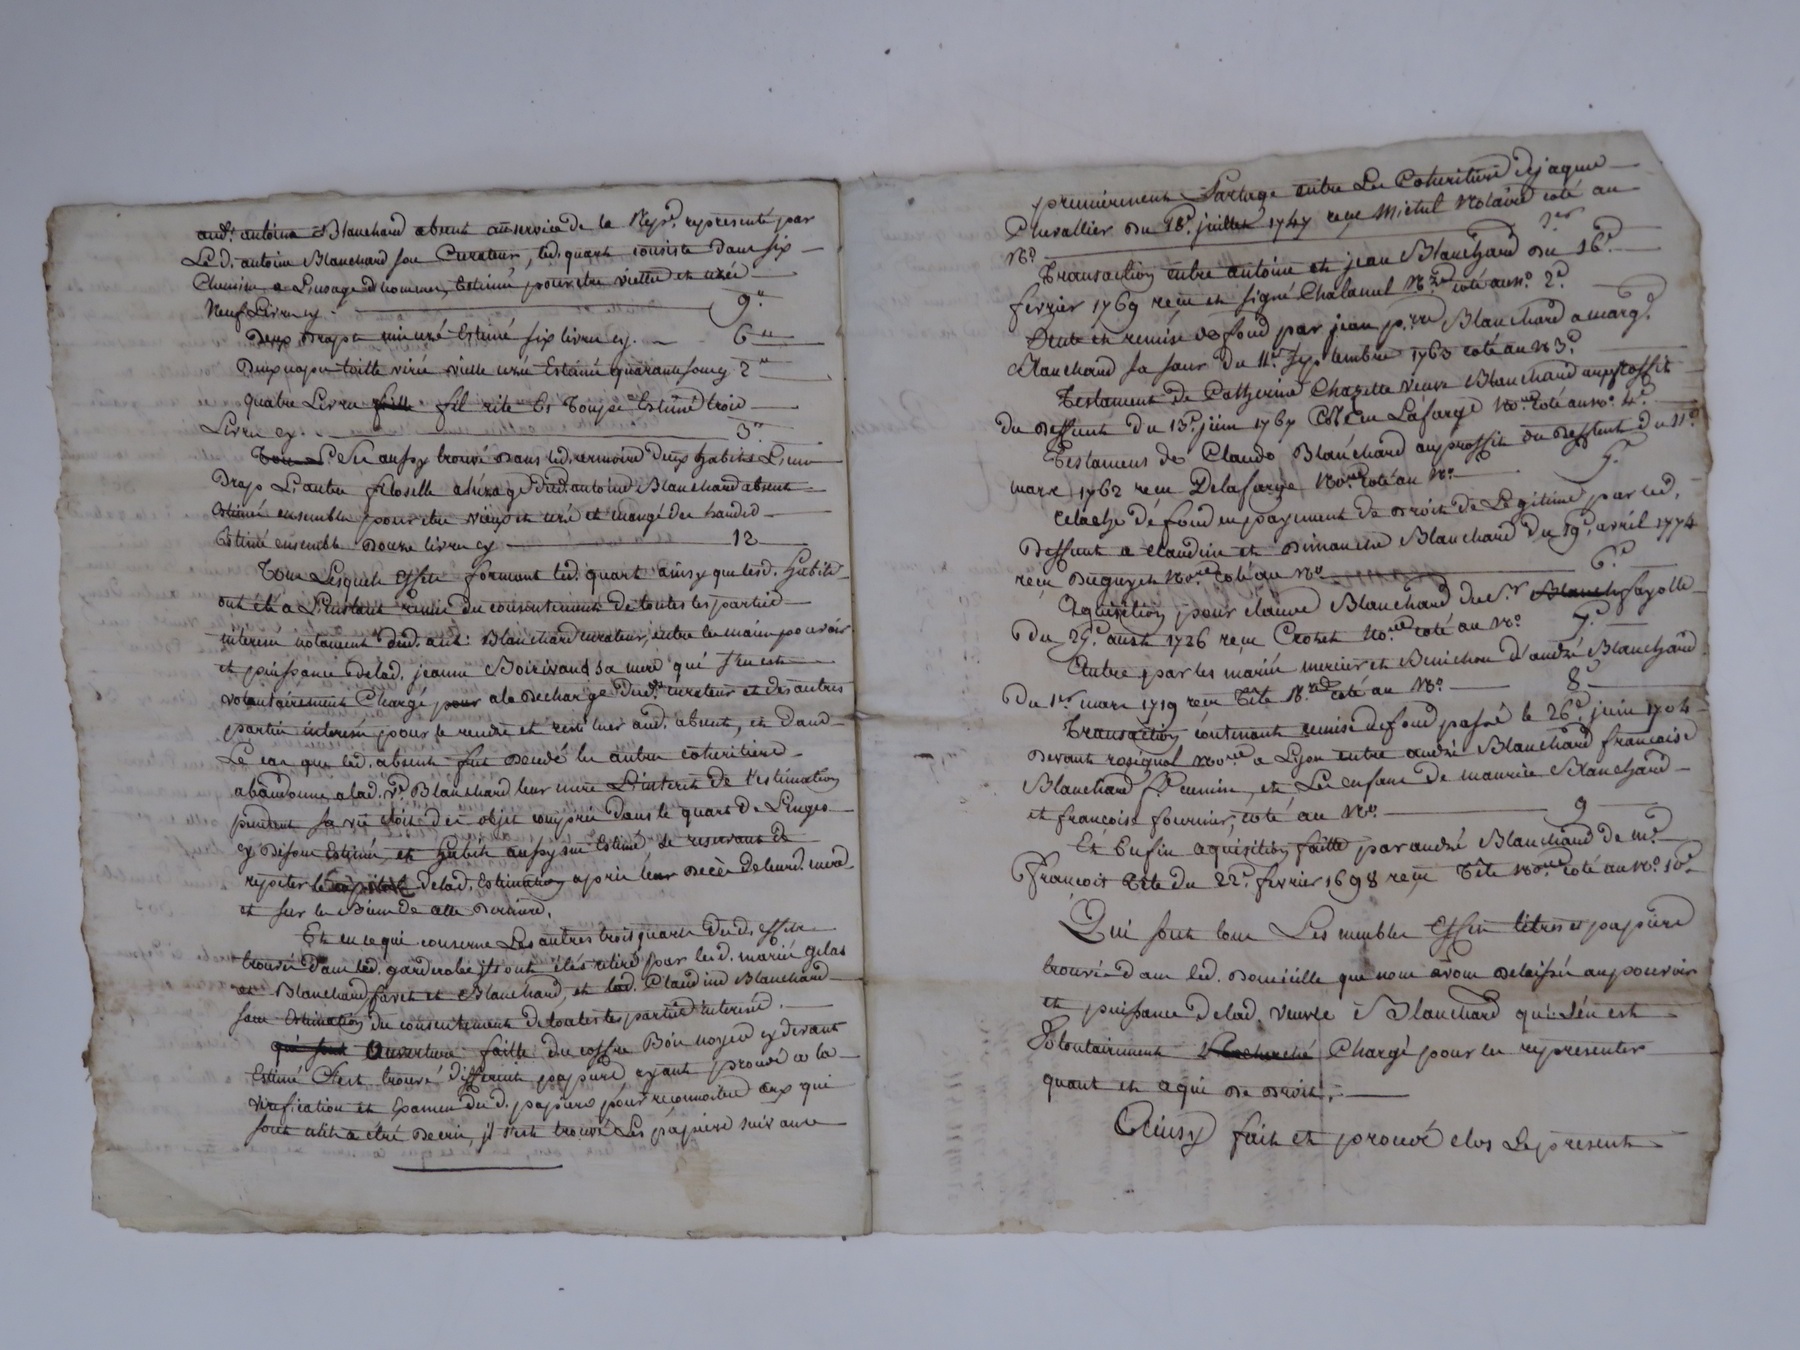 aud.t antoine Blanchard absent au service de la Rep.e representé par
Le d. antoine Blanchard son Curateur, led. quart consiste dans six
Chemises a L'usage d'hommes, Estimé pour etre vieille et uzée
Neuf Livres cy. 9"
Deux Draps mi uzé Estimé six livres cy. 6"
Deux napes toille virié vielle uzée Estimé quarante sous cy 2"
quatre Livres fil rite et Toupe Estimé trois
Livres cy. 3"
S'est aussy trouvé dans led. armoire deux habits L'un
Drap L'autre filoselle a l'uzage dud. antoine Blanchard absent
Estimé ensemble pour etre vieux et uzé et mangé des hardes
Estimé ensemble Douze livres cy 12
Tous Lesquels Effets formant led. quart ainsy que lesd. habits
ont été a L'instant remis du consentement de toutes les parties
interessé notament dud. ant. Blanchard curateur, entre les mains pouvoir
et puissance de lad. jeanne Boirivand sa mere qui s'en est
volontairement Chargé a la decharge dud. curateur et des autres
parties interessé pour le rendre et restituer aud. absent, et dans
Le cas que led. absent fut decédé les autres coheritiers
abandonne a lad. v.e Blanchard leur mere L'interet de l'estimation
pendant sa vie des objets compris dans le quart de Linges
cy dessus Estimé, et habits aussy sus Estimé se reservant de
repeter de lad. Estimation après leur decès de leurd. mere
et sur les Biens de cette derniere.
Et en ce qui conserne Les autres trois quarts desd. effets
trouvé dans led. garderobe ils ont étés retiré par lesd. mariés gelas
et Blanchard, favet et Blanchard, et lad. Claudine Blanchard
sans Estimation du consentement de toutes les parties interessé.
Ouverture faitte du coffre Bois noyer cy devant
Estimé s'est trouvé differents papiers ayant procedé a la
verification et Examen desd. papiers pour reconnoitre ceux qui
sont utile a etré decrit, il s'est trouvé Les papiers suivants
premierement Partage entre Les Coheritiers de jaques
Chevallier du 18.e juillet 1747 reçu Michel Notaire coté au
N.o 1.er
Transaction entre antoine et jean Blanchard du 16.e
fevrier 1769 reçu et signé Chalamel N.re coté au n.o 2.e
Vente et remise de fond par jean p.rre Blanchard a marg.te
Blanchard sa sœur du 11.e septembre 1763 coté au N 3.e
Testament de Catherine Chazette veuve Blanchard au proffit
du deffunt du 13.e juin 1767 reçu Lafarge No.re coté au n.o 4.e
Testament de Claude Blanchard au proffit du deffunt du 11.e
mars 1762 reçu Delafarge No.re coté au N.o 5.e
relache de fond en payement de droit de Legitime par led.
deffunt a claudine et Dimanche Blanchard du 19.e avril 1774
reçu Duguyet No.re coté au N.o 6.e
Aquisition pour claude Blanchard du S.r fayolle
du 29.e aoust 1726 reçu Crozet No.re coté au N.o 7.e
Autre par les mariés mercier et Benichon d'andré Blanchard
du 1.er mars 1719 reçu Tête N.re coté au N.o 8
Transaction contenant remise de fond passé le 26.e juin 1704
devant rosignol No.re a Lyon entre andré Blanchard francoise
Blanchard et Les enfans de maurice Blanchard
et françoise fournier, coté au N.o 9
Et Enfin aquisition faitte par andré Blanchard de m.e
François Tête du 22.e fevrier 1698 reçu Tête No.re coté au N.o 10.e
Qui sont tous Les meubles Effets titres et papiers
trouvé dans led. domicille que nous avons delaissé au pouvoir
et puissance de lad. veuve Blanchard qui s'en est
Volontairement Chargé pour les representer
quant et a qui de droit.
Ainsy fait et procedé clos Le present